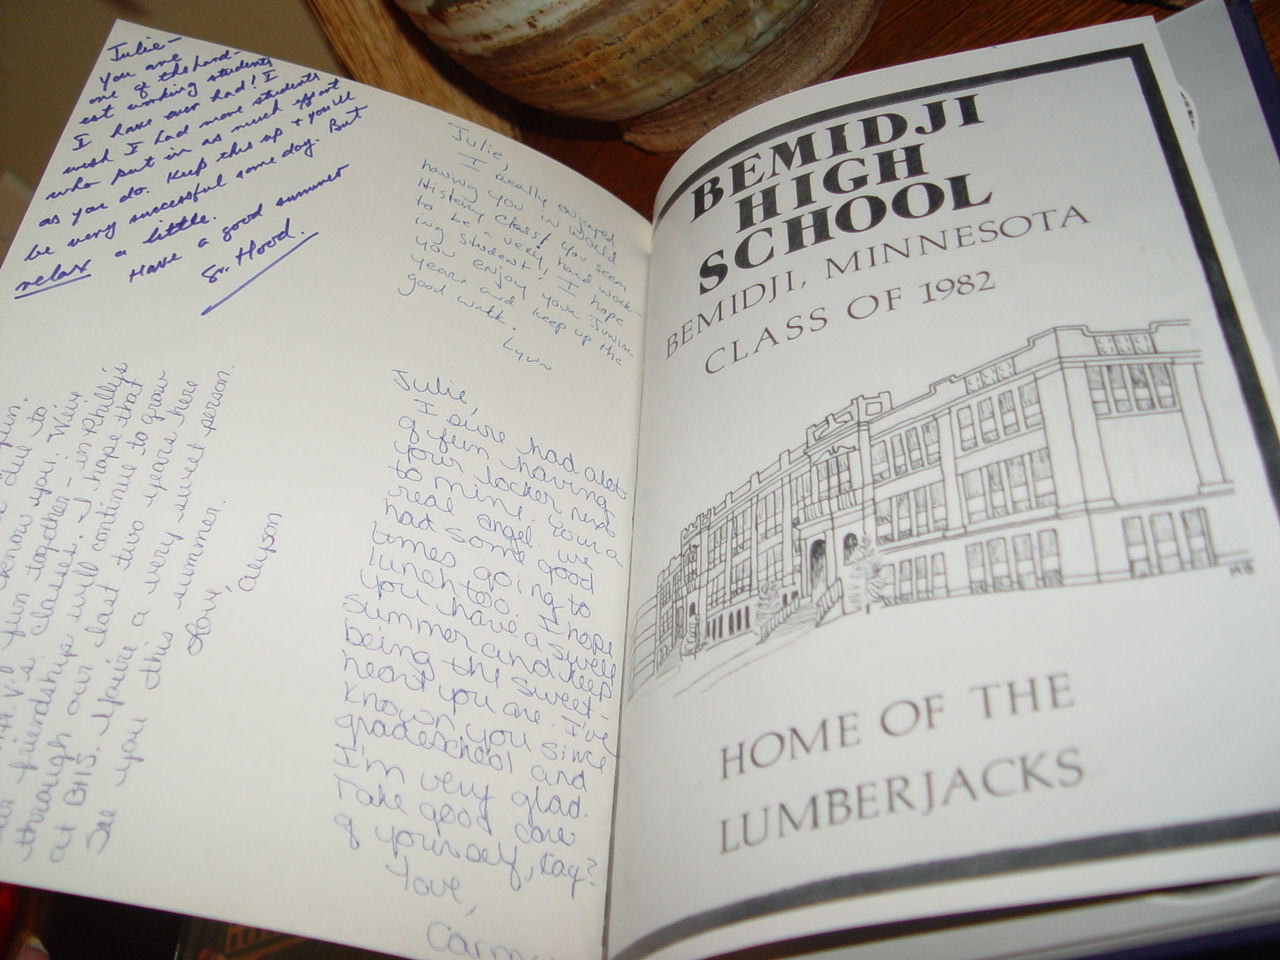 Julie -
you are
one of the hard-
est working students
I have ever had! I
wish I had more students
who put in as much effort
as you do. Keep this up + you'll
be very successful some day. But
relax a little.
Have a good summer
Sr. Hood.
Julie,
I really enjoyed
having you in World
History class! You seem
to be a very hard work-
ing student! I hope
you enjoy your Junior
year and keep up the
good work.
Lynn
fun.
due to
know you. We've
fun together - in Philly's
V's classes. I hope that
our friendship will continue to grow
through our last two years here
at BHS. You're a very sweet person.
See you this summer.
Love, Alyson
Julie,
I sure had alot
of fun having
your locker next
to mine. Your a
real angel. We
had some good
times going to
lunch too. I hope
you have a swell
summer and keep
being the sweet-
heart you are. I've
known you since
gradeschool and
I'm very glad.
Take good care
of yourself, Kay?
Love,
BEMIDJI
HIGH
SCHOOL
BEMIDJI, MINNESOTA
CLASS OF 1982
MB
HOME OF THE
LUMBERJACKS